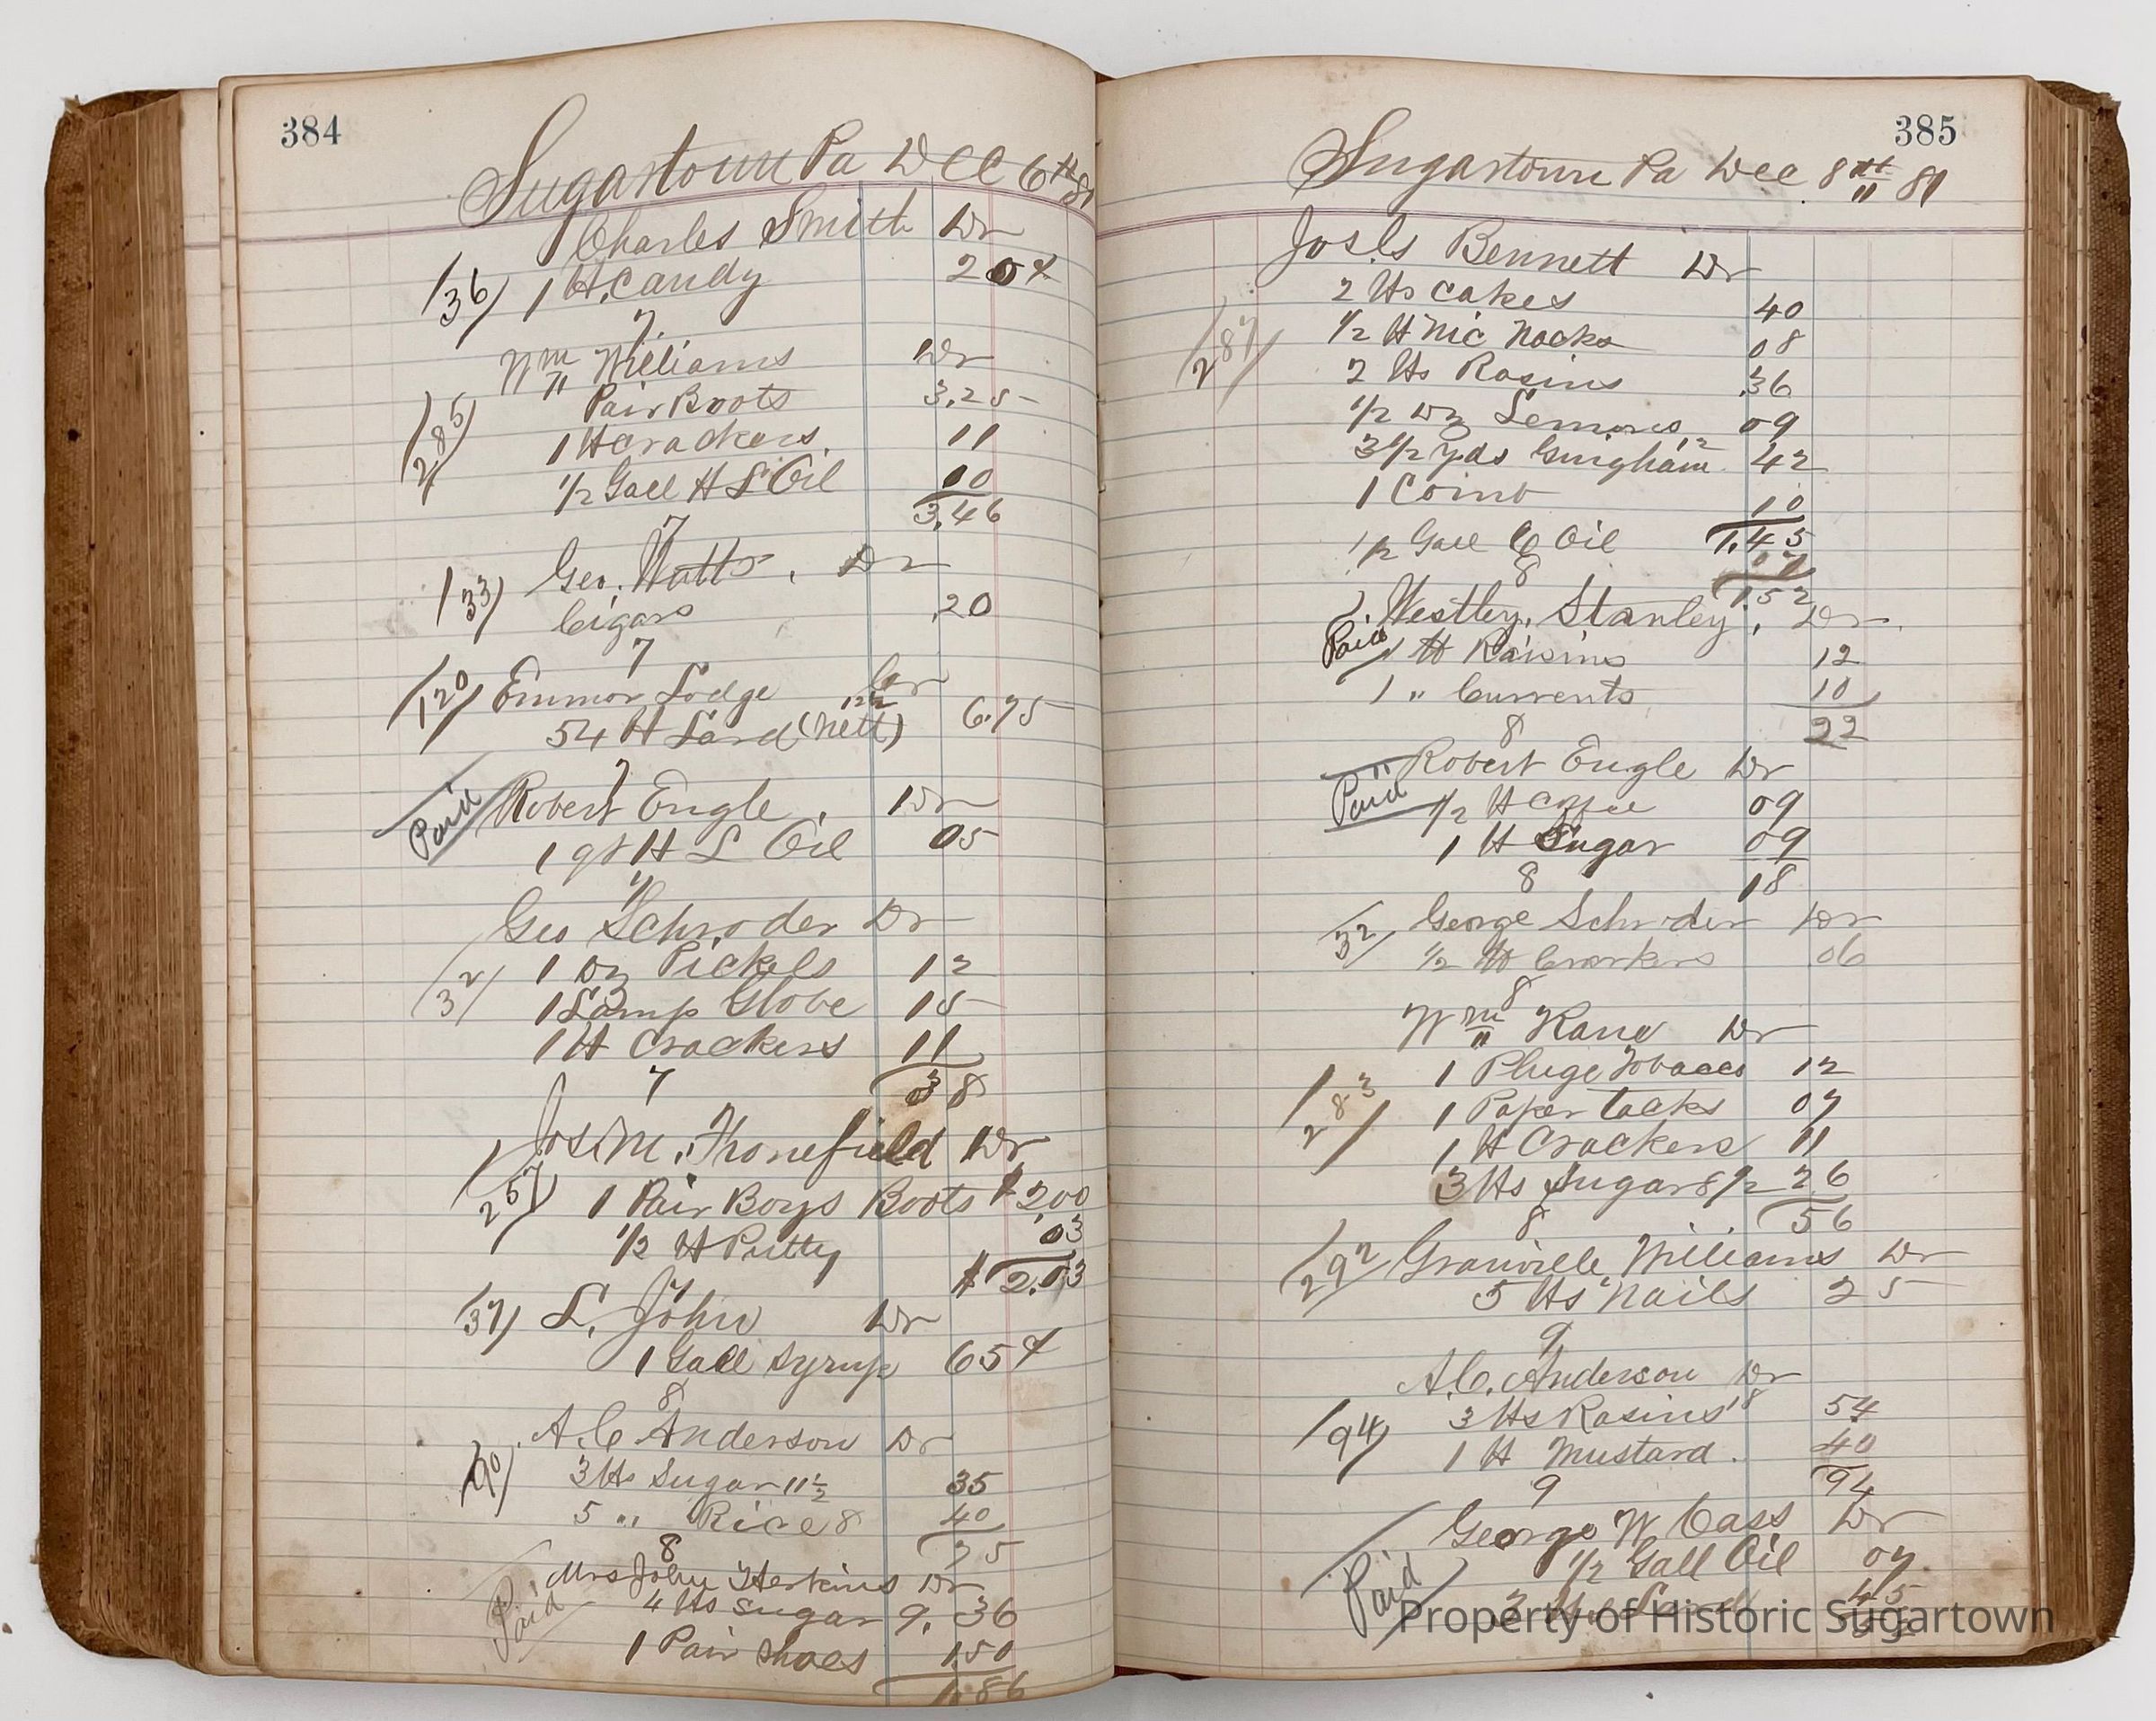 384
Sugartown Pa Dec 6th 81
Charles Smith Dr
36 1 lb. Candy 20¢
7.
Wm Williams Dr
285 Pair Boots 3.25
1 lb crackers 11
1/2 Gall H L Oil 10
3.46
7
Geo. Watts. Dr
33 Cigars .20
7
120 Emmor Lodge Cr
54 lb Lard (nett) 12 1/2 6.75
7
Paid Robert Engle. Dr
1 qt H L Oil 05
7
Geo Schroder Dr
32 1 Dz Pickels 12
1 Lamp Globe 15
1 lb Crackers 11
38
7
Jos. M. Thonefield Dr
257 1 Pair Boys Boots $ 2.00
1/2 lb Putty .03
$ 2.03
7
37 L. John Dr
1 Gall Syrup 65¢
8
A. C Anderson Dr
90 3 lbs Sugar 11 1/2 35
5 " Rice 8 40
75
8
Mrs John Herkins Dr
Paid 4 lbs sugar 9. 36
1 Pair Shoes 1.50
1.86
385
Sugartown Pa Dec 8th 81
Bennett Dr
287 2 lbs Cakes 40
1/2 lb Nic Nacks 08
2 lbs Rasins .36
1/2 Dz Lemons 09
3 1/2 yds Gingham 12 42
1 Comb 10
1.45
1/2 Gall C Oil 07
1.52
8
Westley. Stanley. Dr
Paid 1 lb Raisins 12
1 " Currents 10
22
8
Robert Engle Dr
Paid 1/2 lb Coffee 09
1 lb Sugar 09
18
8
32 George Schroder Dr
1/2 lb Crackers .06
8
Wm Kane Dr
283 1 Pluge Tobacco 12
1 Paper tacks 07
1 lb Crackers 11
3 lbs Sugar 8 1/2 26
56
8
292 Granville Williams Dr
5 lbs Nails 25
9
A. C. Anderson Dr
94 3 lbs Rasins 18 54
1 lb Mustard. 40
94
9
George W Cass Dr
Paid 1/2 Gall Oil 07
3 Lard 45
Property of Historic Sugartown